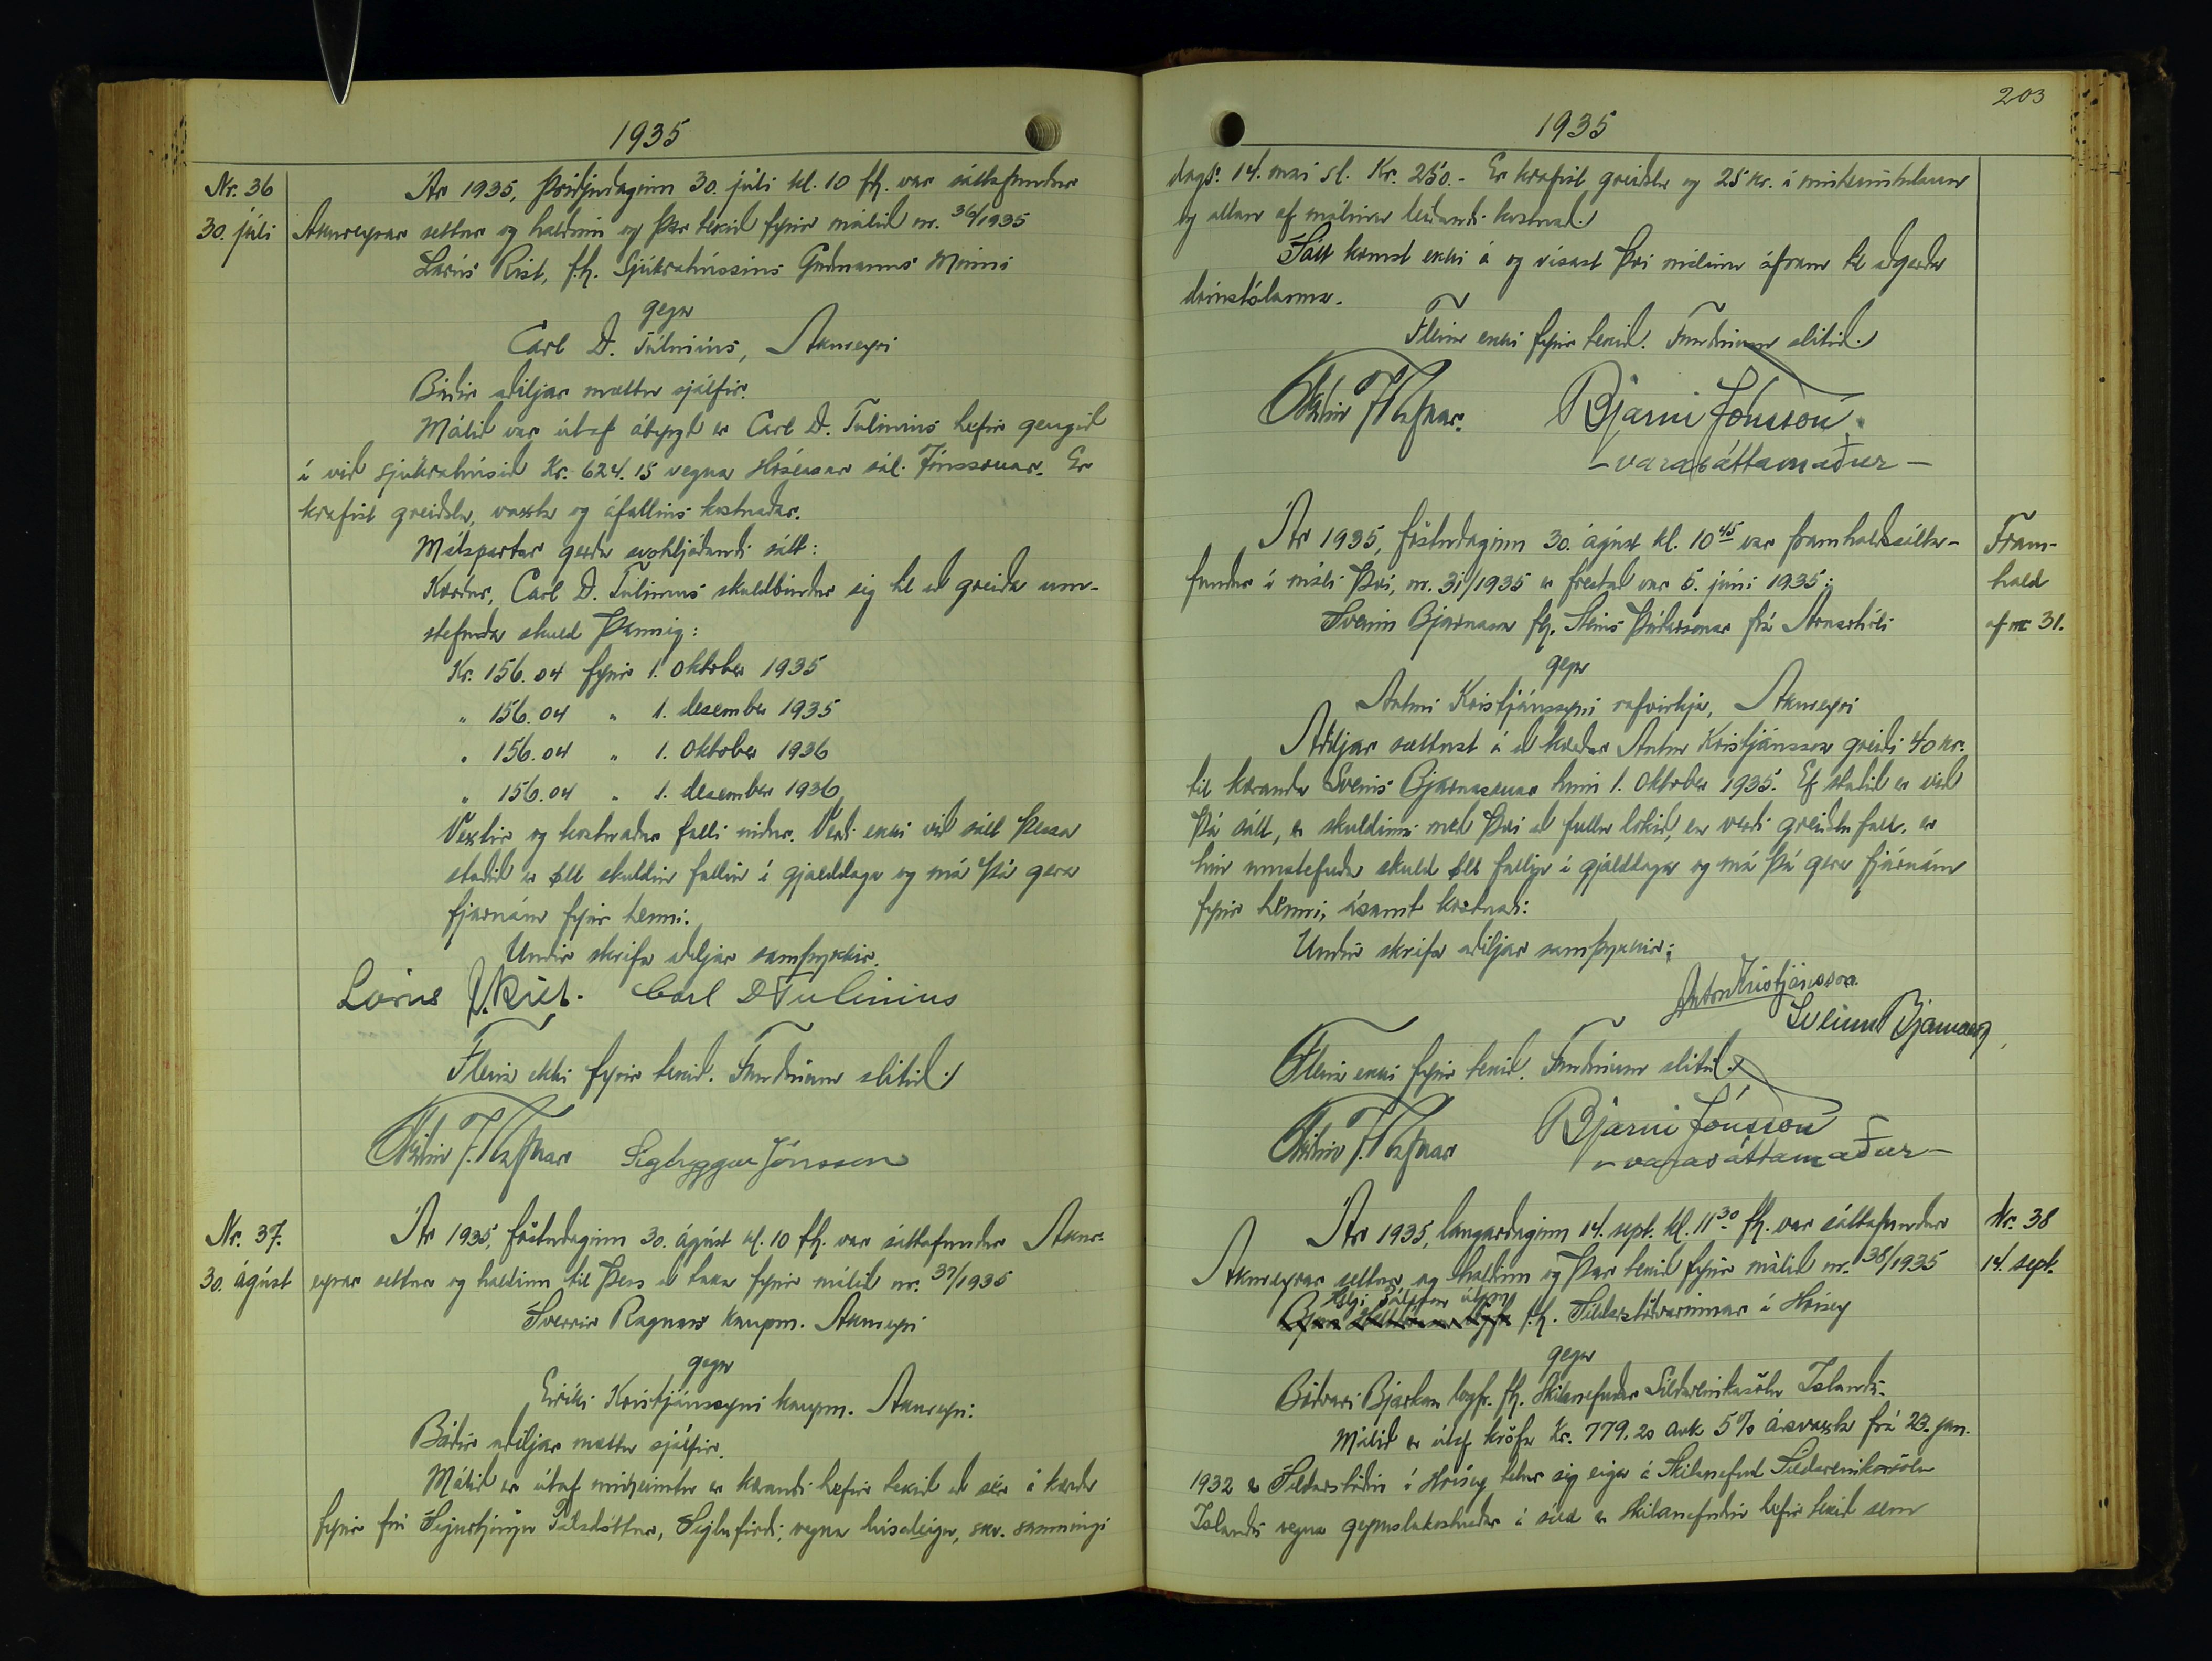 1935
Nr. 36
30. júli
Ár 1935, þriðjudaginn 30. júli kl. 10 fh. var sáttafundur
Akureyrar settur og haldinn og þar tekið fyrir málið nr. 36/1935
Lárus Rist, fh. Sjúkrahússins Gudmanns Minni
gegn
Carl D. Túliníus, Akureyri
Báðir aðiljar mættu sjálfir.
Málið var útaf ábyrgð er Carl D. Tulinius hefir gengið
í við sjúkrahúsið Kr. 624.15 vegna Hóseasar sál. Jónssonar. Er
krafist greiðslu, vaxta og áfallins kostnaðar.
Málspartar gerðu svohljóðandi sátt:
Kærður, Carl D. Tulinius skuldbindur sig til að greiða um-
stefnda skuld þannig:
Kr. 156.04 fyrir 1. oktober 1935
" 156.04 " 1. desember 1935
" 156.04 " 1. oktober 1936
" 156.04 " 1. desember 1936
Vextir og kostnaður falli niður. Verði ekki við sátt þessa
staðið er öll skuldin fallin í gjalddaga og má þá gera
fjárnám fyrir henni.
Undir skrifa aðiljar samþykkir.
Lárus J. Rist. Carl D Tulinius
Fleira ekki fyrir tekið. Fundinum slitið.
Sigtryggur Jónsson
Nr. 37.
30. ágúst
Ár 1935, föstudaginn 30. ágúst kl. 10 fh. var sáttafundur Akur-
eyrar settur og haldinn til þess að taka fyrir málið nr. 37/1935
Sverrir Ragnars kaupm. Akureyri
gegn
Eiríki Kristjánssyni kaupm. Akureyri.
Báðir aðiljar mættu sjálfir.
Málið er útaf innheimtu er kærandi hefir tekið að sér á kærða
fyrir frú Sigurbjörgu Pálsdóttur, Siglufirði, vegna húsaleigu, skv. samningi
203
1935
dags. 14. mai sl. Kr. 250.- Er krafist greiðslu og 25 kr. í
og allan af málinu leiðandi kostnað.
Sátt komst ekki á og vísast því málinu áfram til aðgerða
dómstólanna.
Fleira ekki fyrir tekið. Fundinum slitið.
Bjarni Jónsson
- varasáttamaður -
Ár 1935, föstudaginn 30. ágúst kl. 10 45 var framhaldssátta-
fundur í máli því, nr. 31/1935 er frestað var 5. júní 1935:
Sveinn Bjarnason fh. Steins Þórðarsonar frá Arnarhóli
gegn
Antoni Kristjánssyni rafvirkja, Akureyri
Aðiljar sættust á að kærður Anton Kristjánsson greiði 40 kr.
til kæranda Sveins Bjarnasonar hinn 1. oktober 1935. Ef staðið er við
þá sátt, er skuldinni með því að fullu lokið, en verði greiðslufall, er
hin umstefnda skuld öll fallin í gjalddaga og má þá gera fjárnám
fyrir henni, ásamt kostnaði.
Undir skrifa aðiljar samþykkir:
Anton Kristjánsson
Sveinn Bjarnason
Fleira ekki fyrir tekið. Fundinum slitið.
Bjarni Jónsson
- varasáttamaður -
Fram-
hald
af nr 31.
Ár 1935, laugardaginn 14. sept. kl. 11 30 fh. var sáttafundur
Akureyrar settur og haldinn og þar tekið fyrir málið nr. 38/1935
Helgi Pálsson fh. Síldarstöðvarinnar í Hrísey
gegn
Böðvari Bjarkan lögfr. fh. Skilanefndar Síldareinkasölu Islands.
Málið er útaf kröfu Kr. 779.20 auk 5% ársvaxta frá 23. jan.
1932 er Síldarstöðin í Hrísey telur sig eiga á Skilanefnd Síldareinkasölu
Islands vegna geymslukostnaðar á síld er Skilanefndin hefir tekið sem
Nr. 38
14. sept.